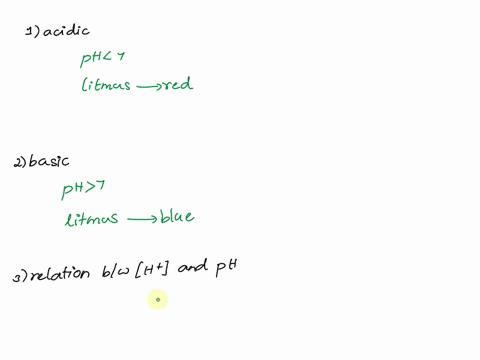 1) acidic
pH < 7
litmus → red
2) basic
pH > 7
litmus → blue
3) relation b/w [H+] and pH